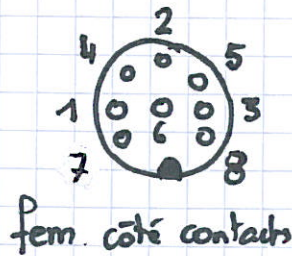 2
4 5
1 3
6
7 8
fem. côté contacts